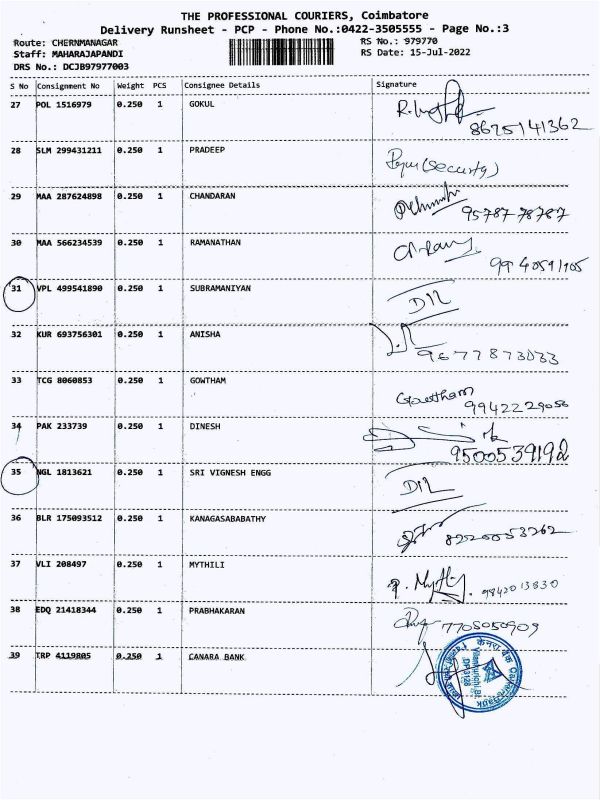 THE PROFESSIONAL COURIERS, Coimbatore
Delivery Runsheet - PCP - Phone No.:0422-3505555 - Page No.:3
Route: CHERNMANAGAR
Staff: MAHARAJAPANDI
DRS No.: DCJB97977003
RS No.: 979770
RS Date: 15-Jul-2022
S No Consignment No Weight PCS Consignee Details Signature
27 POL 1516979 0.250 1 GOKUL
8675141362
28 SLM 299431211 0.250 1 PRADEEP
(Security)
29 MAA 287624898 0.250 1 CHANDARAN
95787 78787
30 MAA 566234539 0.250 1 RAMANATHAN
31 VPL 499541890 0.250 1 SUBRAMANIYAN
32 KUR 693756301 0.250 1 ANISHA
9677873033
33 TCG 8060853 0.250 1 GOWTHAM
Gowtham
9942229056
34 PAK 233739 0.250 1 DINESH
9500539192
35 NGL 1813621 0.250 1 SRI VIGNESH ENGG
36 BLR 175093512 0.250 1 KANAGASABABATHY
8220053262
37 VLI 208497 0.250 1 MYTHILI
9842013830
38 EDQ 21418344 0.250 1 PRABHAKARAN
7705050909
39 TRP 4119805 0.250 1 CANARA BANK
Canara Bank